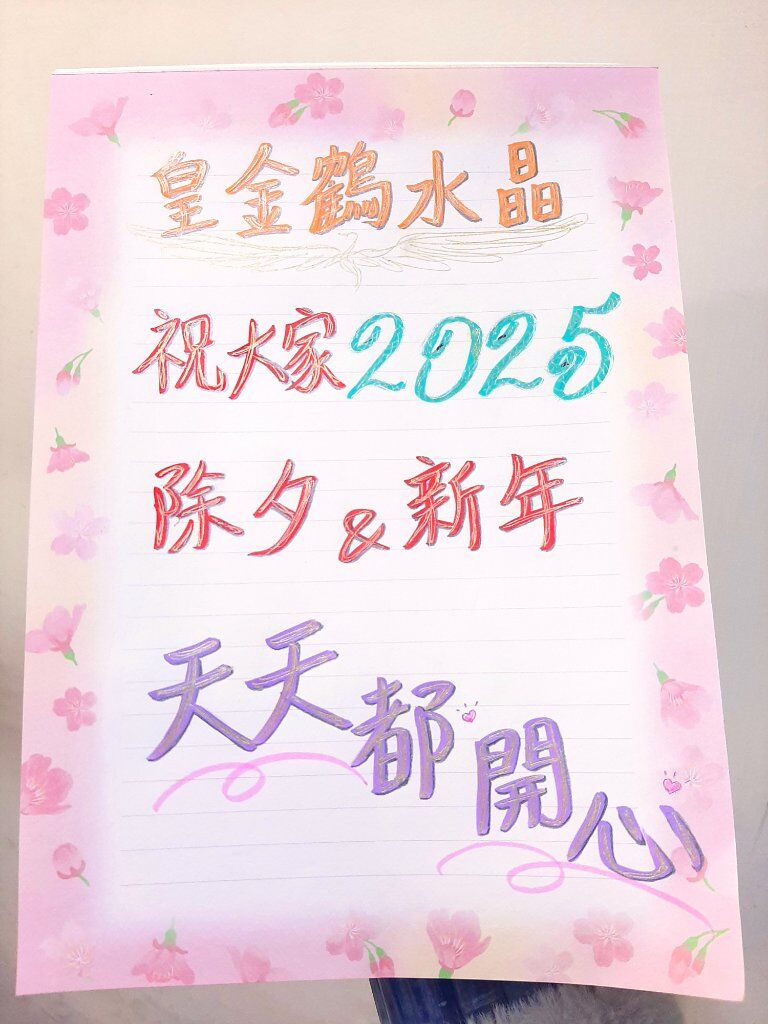 皇金鶴水晶
祝大家2025
除夕&新年
天天都開心